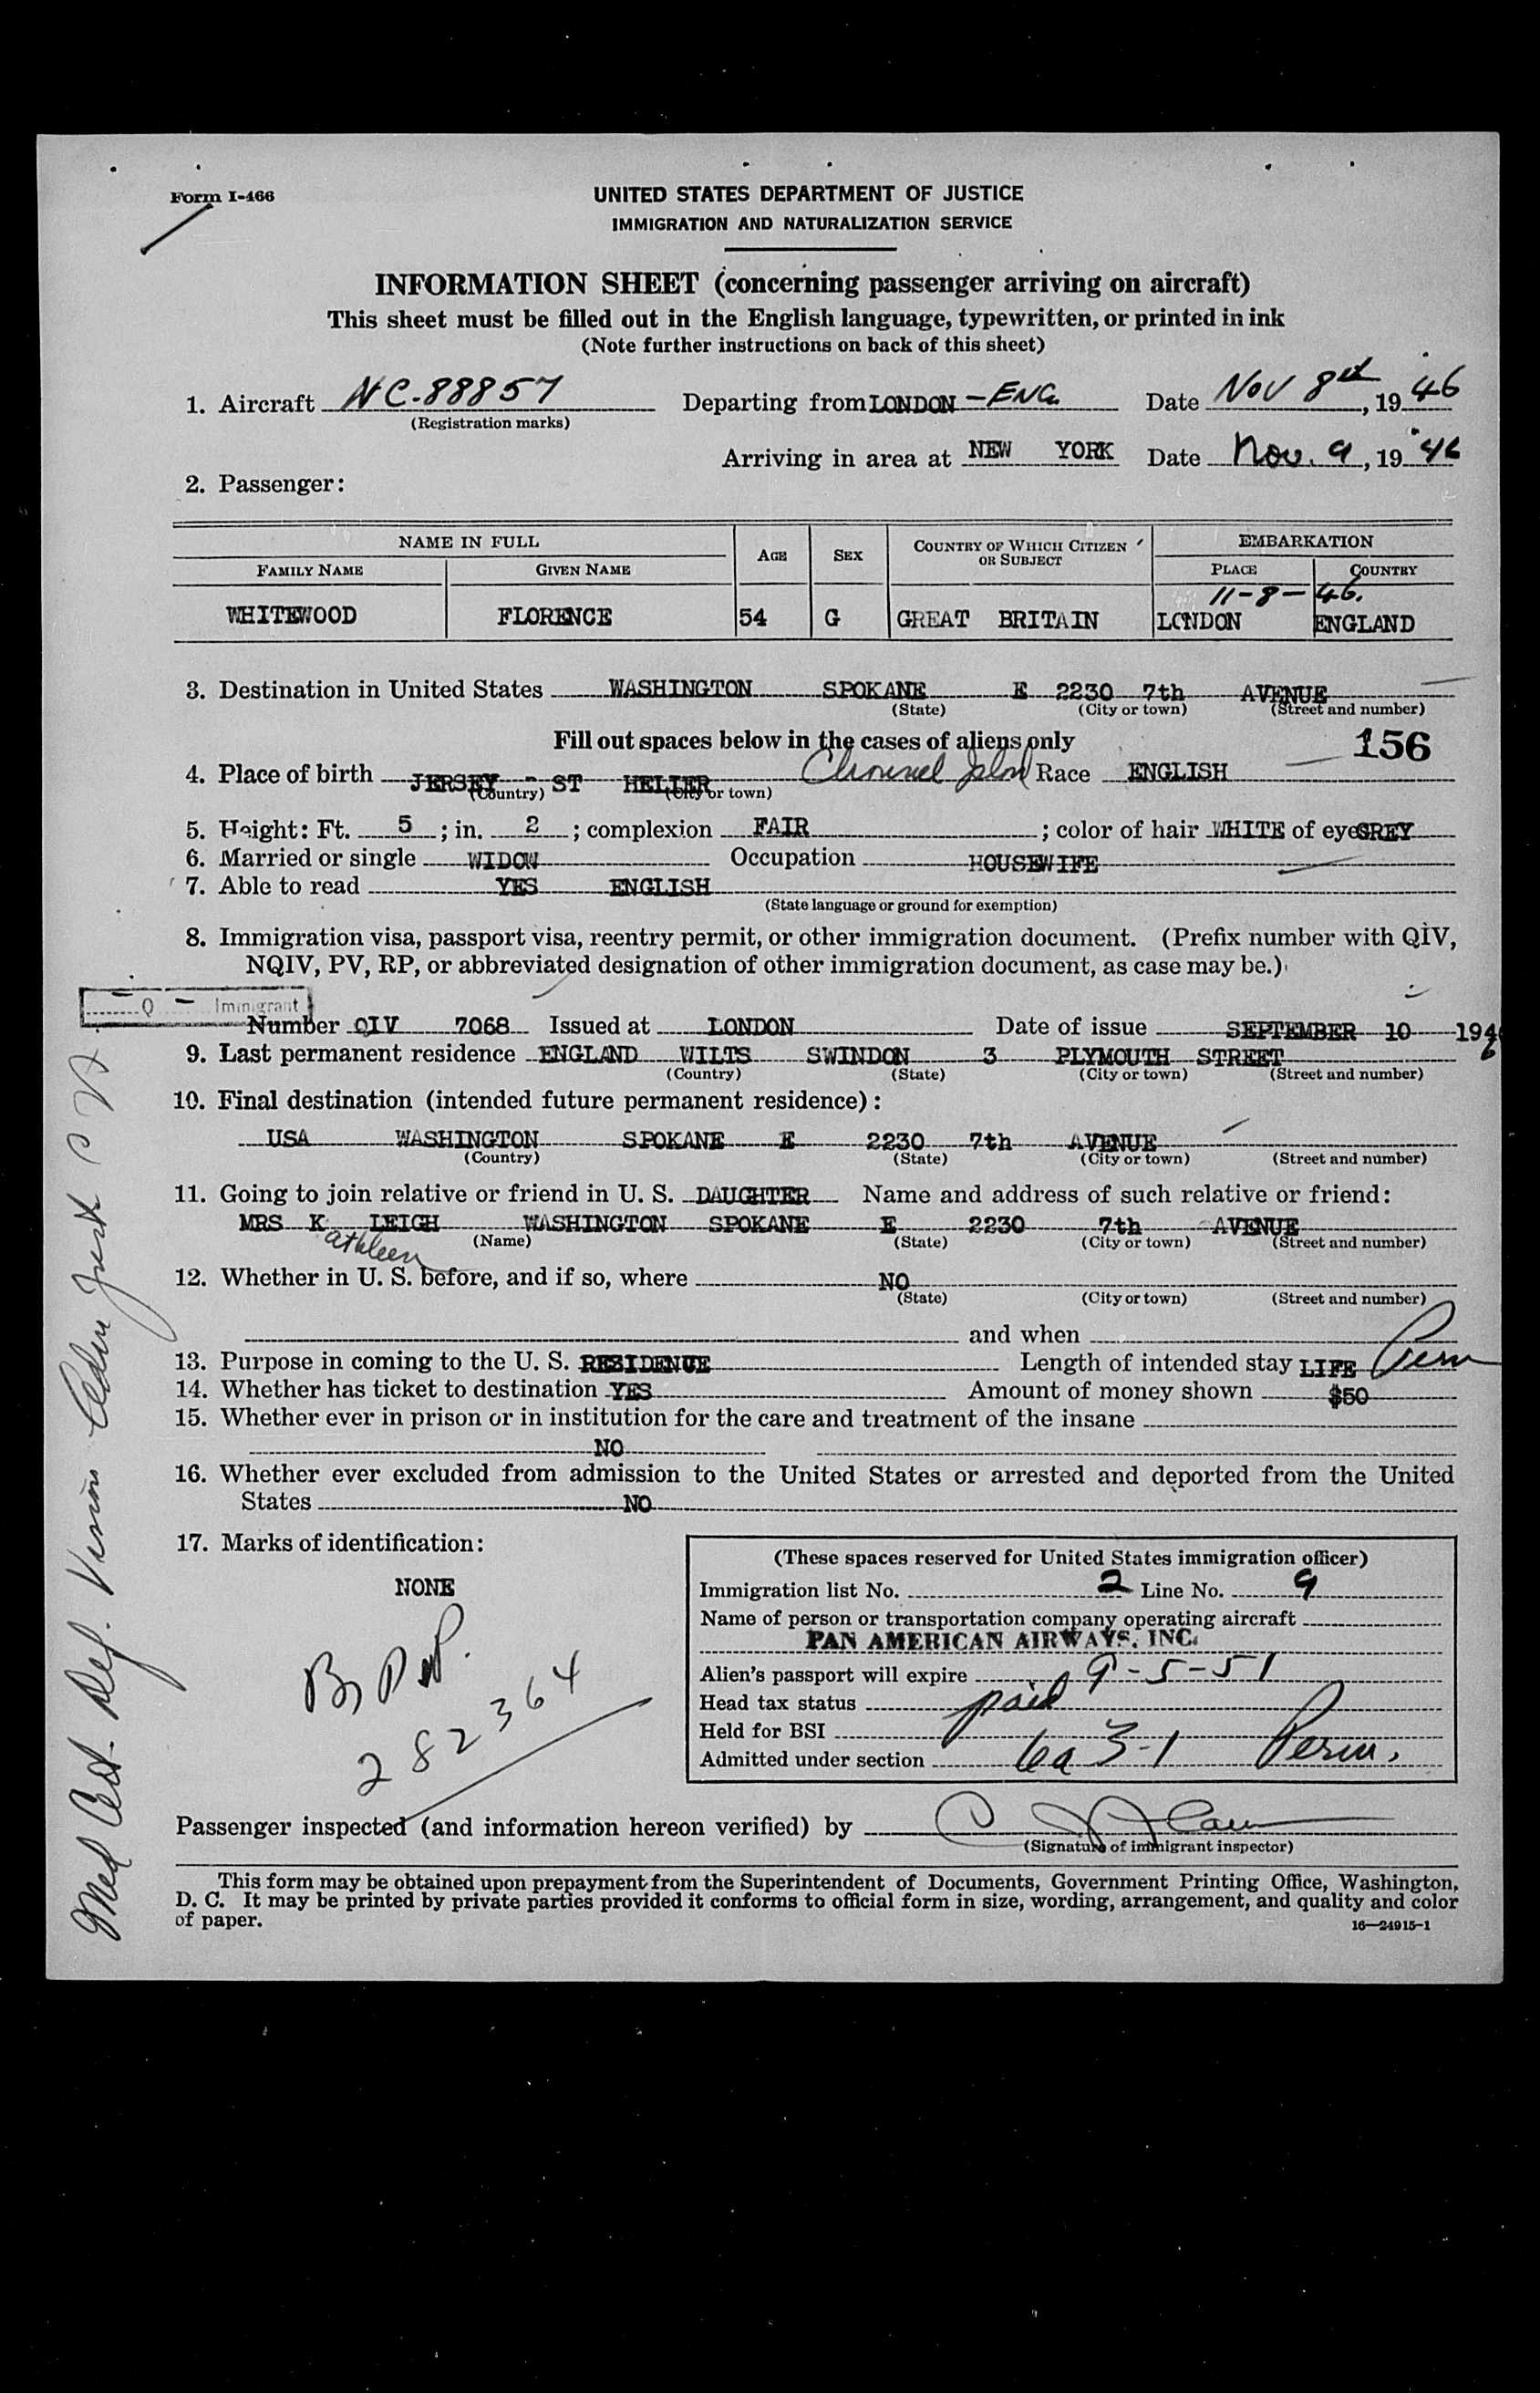 Form I-466
UNITED STATES DEPARTMENT OF JUSTICE
IMMIGRATION AND NATURALIZATION SERVICE
INFORMATION SHEET (concerning passenger arriving on aircraft)
This sheet must be filled out in the English language, typewritten, or printed in ink
(Note further instructions on back of this sheet)
1. Aircraft NC-88857 Departing from LONDON - ENG. Date Nov 8th, 19 46
(Registration marks)
Arriving in area at NEW YORK Date Nov. 9, 19 46
2. Passenger:
NAME IN FULL AGE SEX COUNTRY OF WHICH CITIZEN OR SUBJECT EMBARKATION
FAMILY NAME GIVEN NAME PLACE COUNTRY
11-8-46.
WHITEWOOD FLORENCE 54 G GREAT BRITAIN LONDON ENGLAND
3. Destination in United States WASHINGTON SPOKANE E 2230 7th AVENUE
(State) (City or town) (Street and number)
Fill out spaces below in the cases of aliens only 156
4. Place of birth JERSEY - ST HELIER Channel Island Race ENGLISH
(Country) (City or town)
5. Height: Ft. 5; in. 2; complexion FAIR; color of hair WHITE of eyes GREY
6. Married or single WIDOW Occupation HOUSEWIFE
7. Able to read YES ENGLISH
(State language or ground for exemption)
8. Immigration visa, passport visa, reentry permit, or other immigration document. (Prefix number with QIV,
NQIV, PV, RP, or abbreviated designation of other immigration document, as case may be.)
Q - Immigrant
Number QIV 7068 Issued at LONDON Date of issue SEPTEMBER 10 1946
9. Last permanent residence ENGLAND WILTS SWINDON 3 PLYMOUTH STREET
(Country) (State) (City or town) (Street and number)
10. Final destination (intended future permanent residence):
USA WASHINGTON SPOKANE E 2230 7th AVENUE
(Country) (State) (City or town) (Street and number)
11. Going to join relative or friend in U. S. DAUGHTER Name and address of such relative or friend:
MRS Kathleen LEIGH WASHINGTON SPOKANE E 2230 7th AVENUE
(Name) (State) (City or town) (Street and number)
12. Whether in U. S. before, and if so, where NO
(State) (City or town) (Street and number)
and when
13. Purpose in coming to the U. S. RESIDENCE Length of intended stay LIFE Perm
14. Whether has ticket to destination YES Amount of money shown $50
15. Whether ever in prison or in institution for the care and treatment of the insane
NO
16. Whether ever excluded from admission to the United States or arrested and deported from the United
States NO
17. Marks of identification:
NONE
282364
(These spaces reserved for United States immigration officer)
Immigration list No. 2 Line No. 9
Name of person or transportation company operating aircraft
PAN AMERICAN AIRWAYS, INC.
Alien's passport will expire 9-5-51
Head tax status paid
Held for BSI
Admitted under section 6a 3-1 Perm.
Passenger inspected (and information hereon verified) by
(Signature of immigrant inspector)
This form may be obtained upon prepayment from the Superintendent of Documents, Government Printing Office, Washington,
D. C. It may be printed by private parties provided it conforms to official form in size, wording, arrangement, and quality and color
of paper.
16—24915-1
Med Cert. Def. Vision